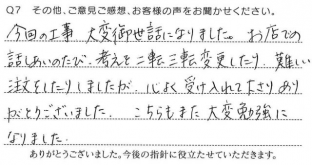 Q7 その他、ご意見ご感想、お客様の声をお聞かせください。
今回の工事 大変御世話になりました。お店での
話しあいのたび、考えを二転三転変更したり、難しい
注文をしたりしましたが、心よく受け入れて下さりあり
がとうございました。 こちらもまた大変勉強に
なりました。
ありがとうございました。今後の指針に役立たせていただきます。